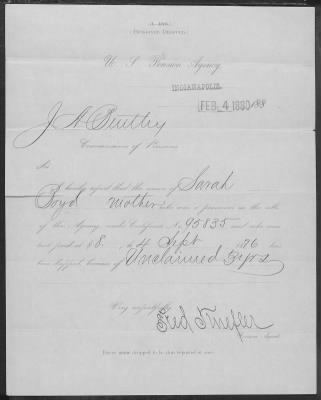 (Pensioner Dropped)
U. S. Pension Agency,
INDIANAPOLIS.
FEB 4 1880 188
J A Bentley
Commissioner of Pensions
Sir
I hereby report that the name of Sarah
Boyd Mother who was a pensioner on the rolls
of this Agency under Certificate No 95835 and who was
last paid at $8. to 4 Sept 1876 has
been dropped because of Unclaimed 3 yrs
Very respectfully,
Fred Knefler
Pension Agent.
Every name dropped to be thus reported at once.